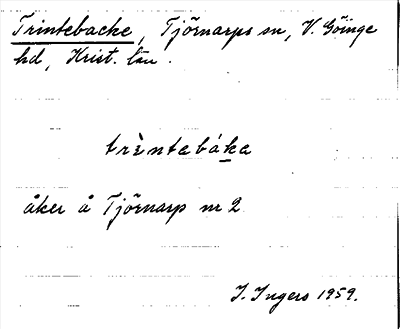 Trintebacke, Tjörnarps sn, V. Göinge
hd, Krist. län.
trìntebáka
åker å Tjörnarp nr 2
I. Ingers 1959.